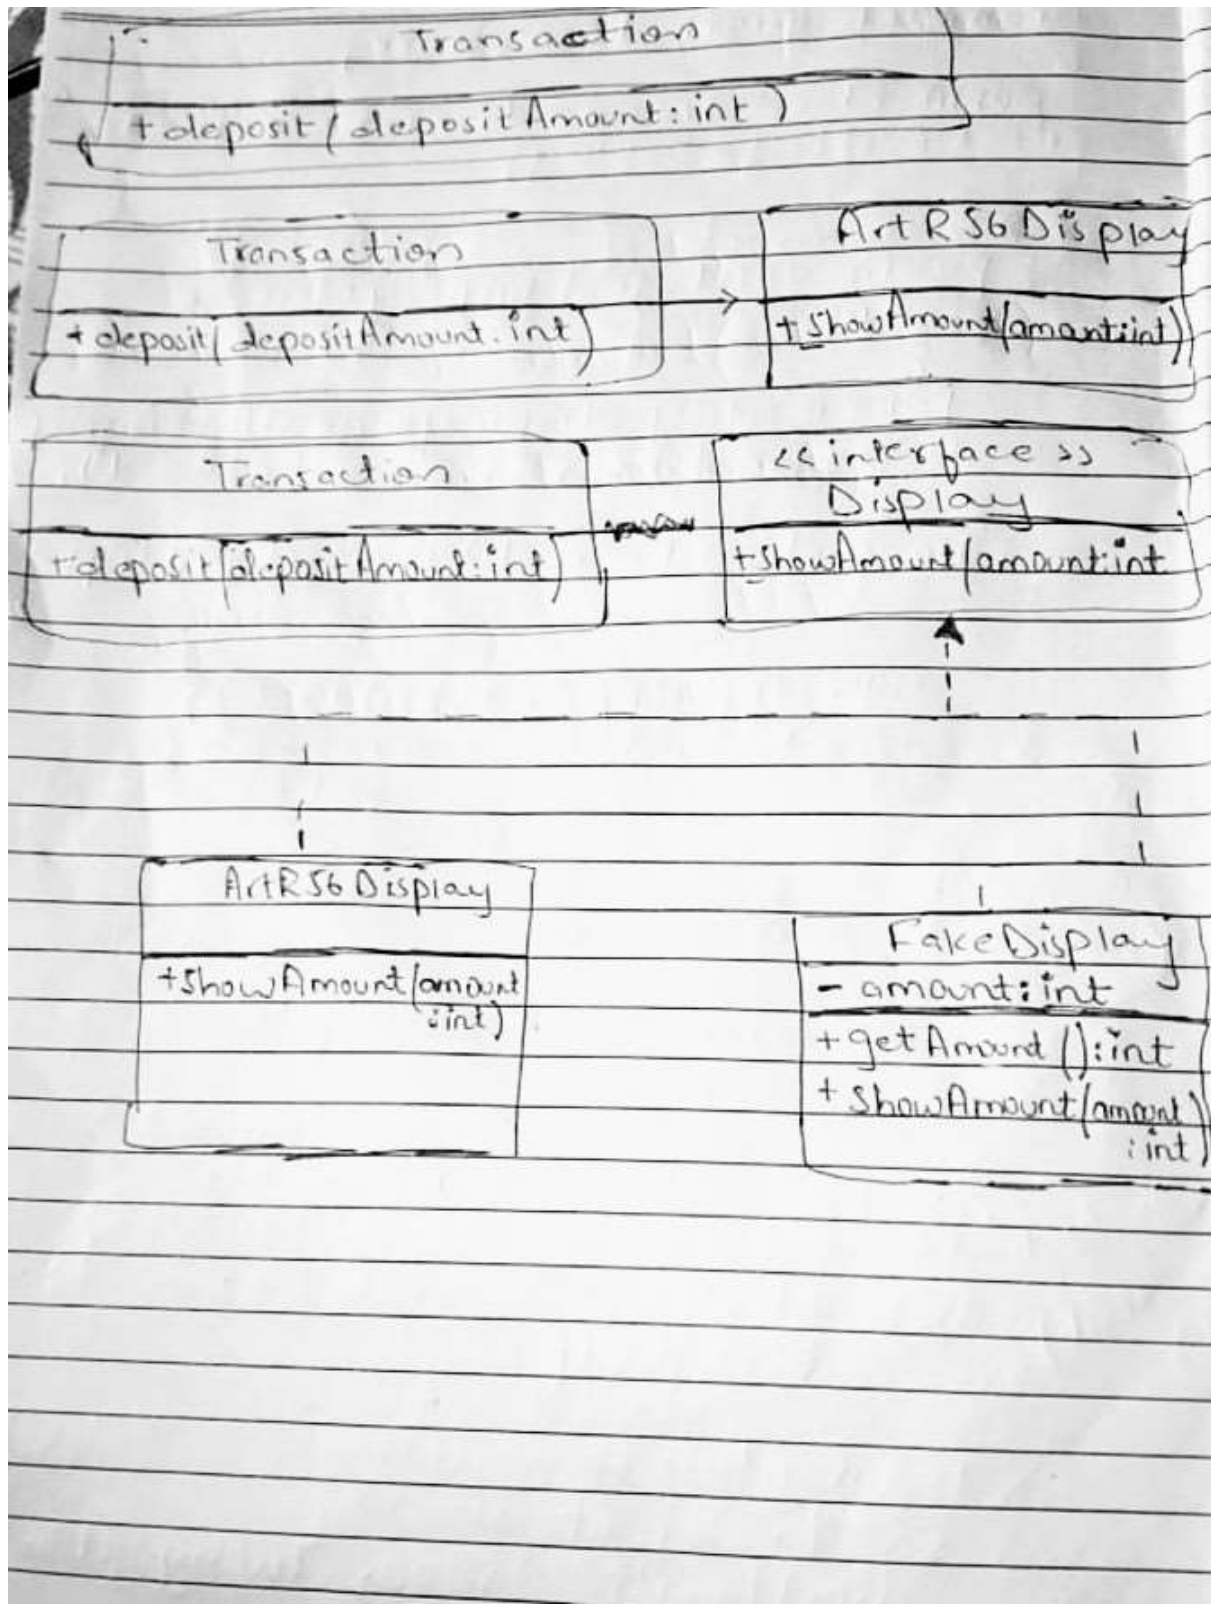 Transaction
+ deposit(depositAmount: int)
Transaction
+ deposit(depositAmount: int)
ArtR56Display
+ showAmount(amount:int)
Transaction
+ deposit(depositAmount: int)
<< interface >>
Display
+ showAmount(amount:int
ArtR56Display
+ showAmount(amount
: int)
FakeDisplay
- amount: int
+ getAmount(): int
+ showAmount(amount)
: int)